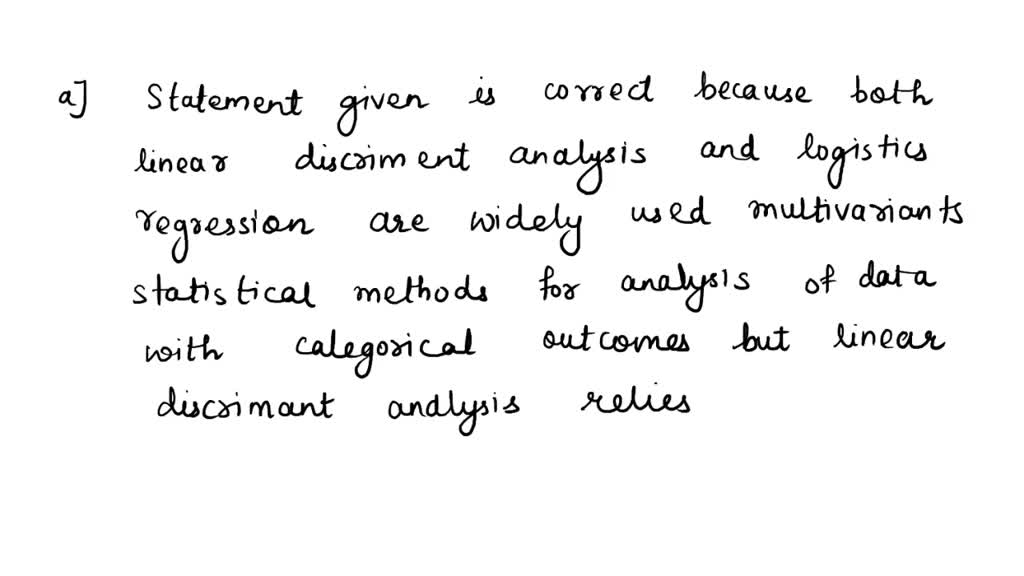 a] Statement given is correct because both
linear discriment analysis and logistics
regression are widely used multivariants
statistical methods for analysis of data
with calegorical outcomes but linear
discrimant andlysis relies